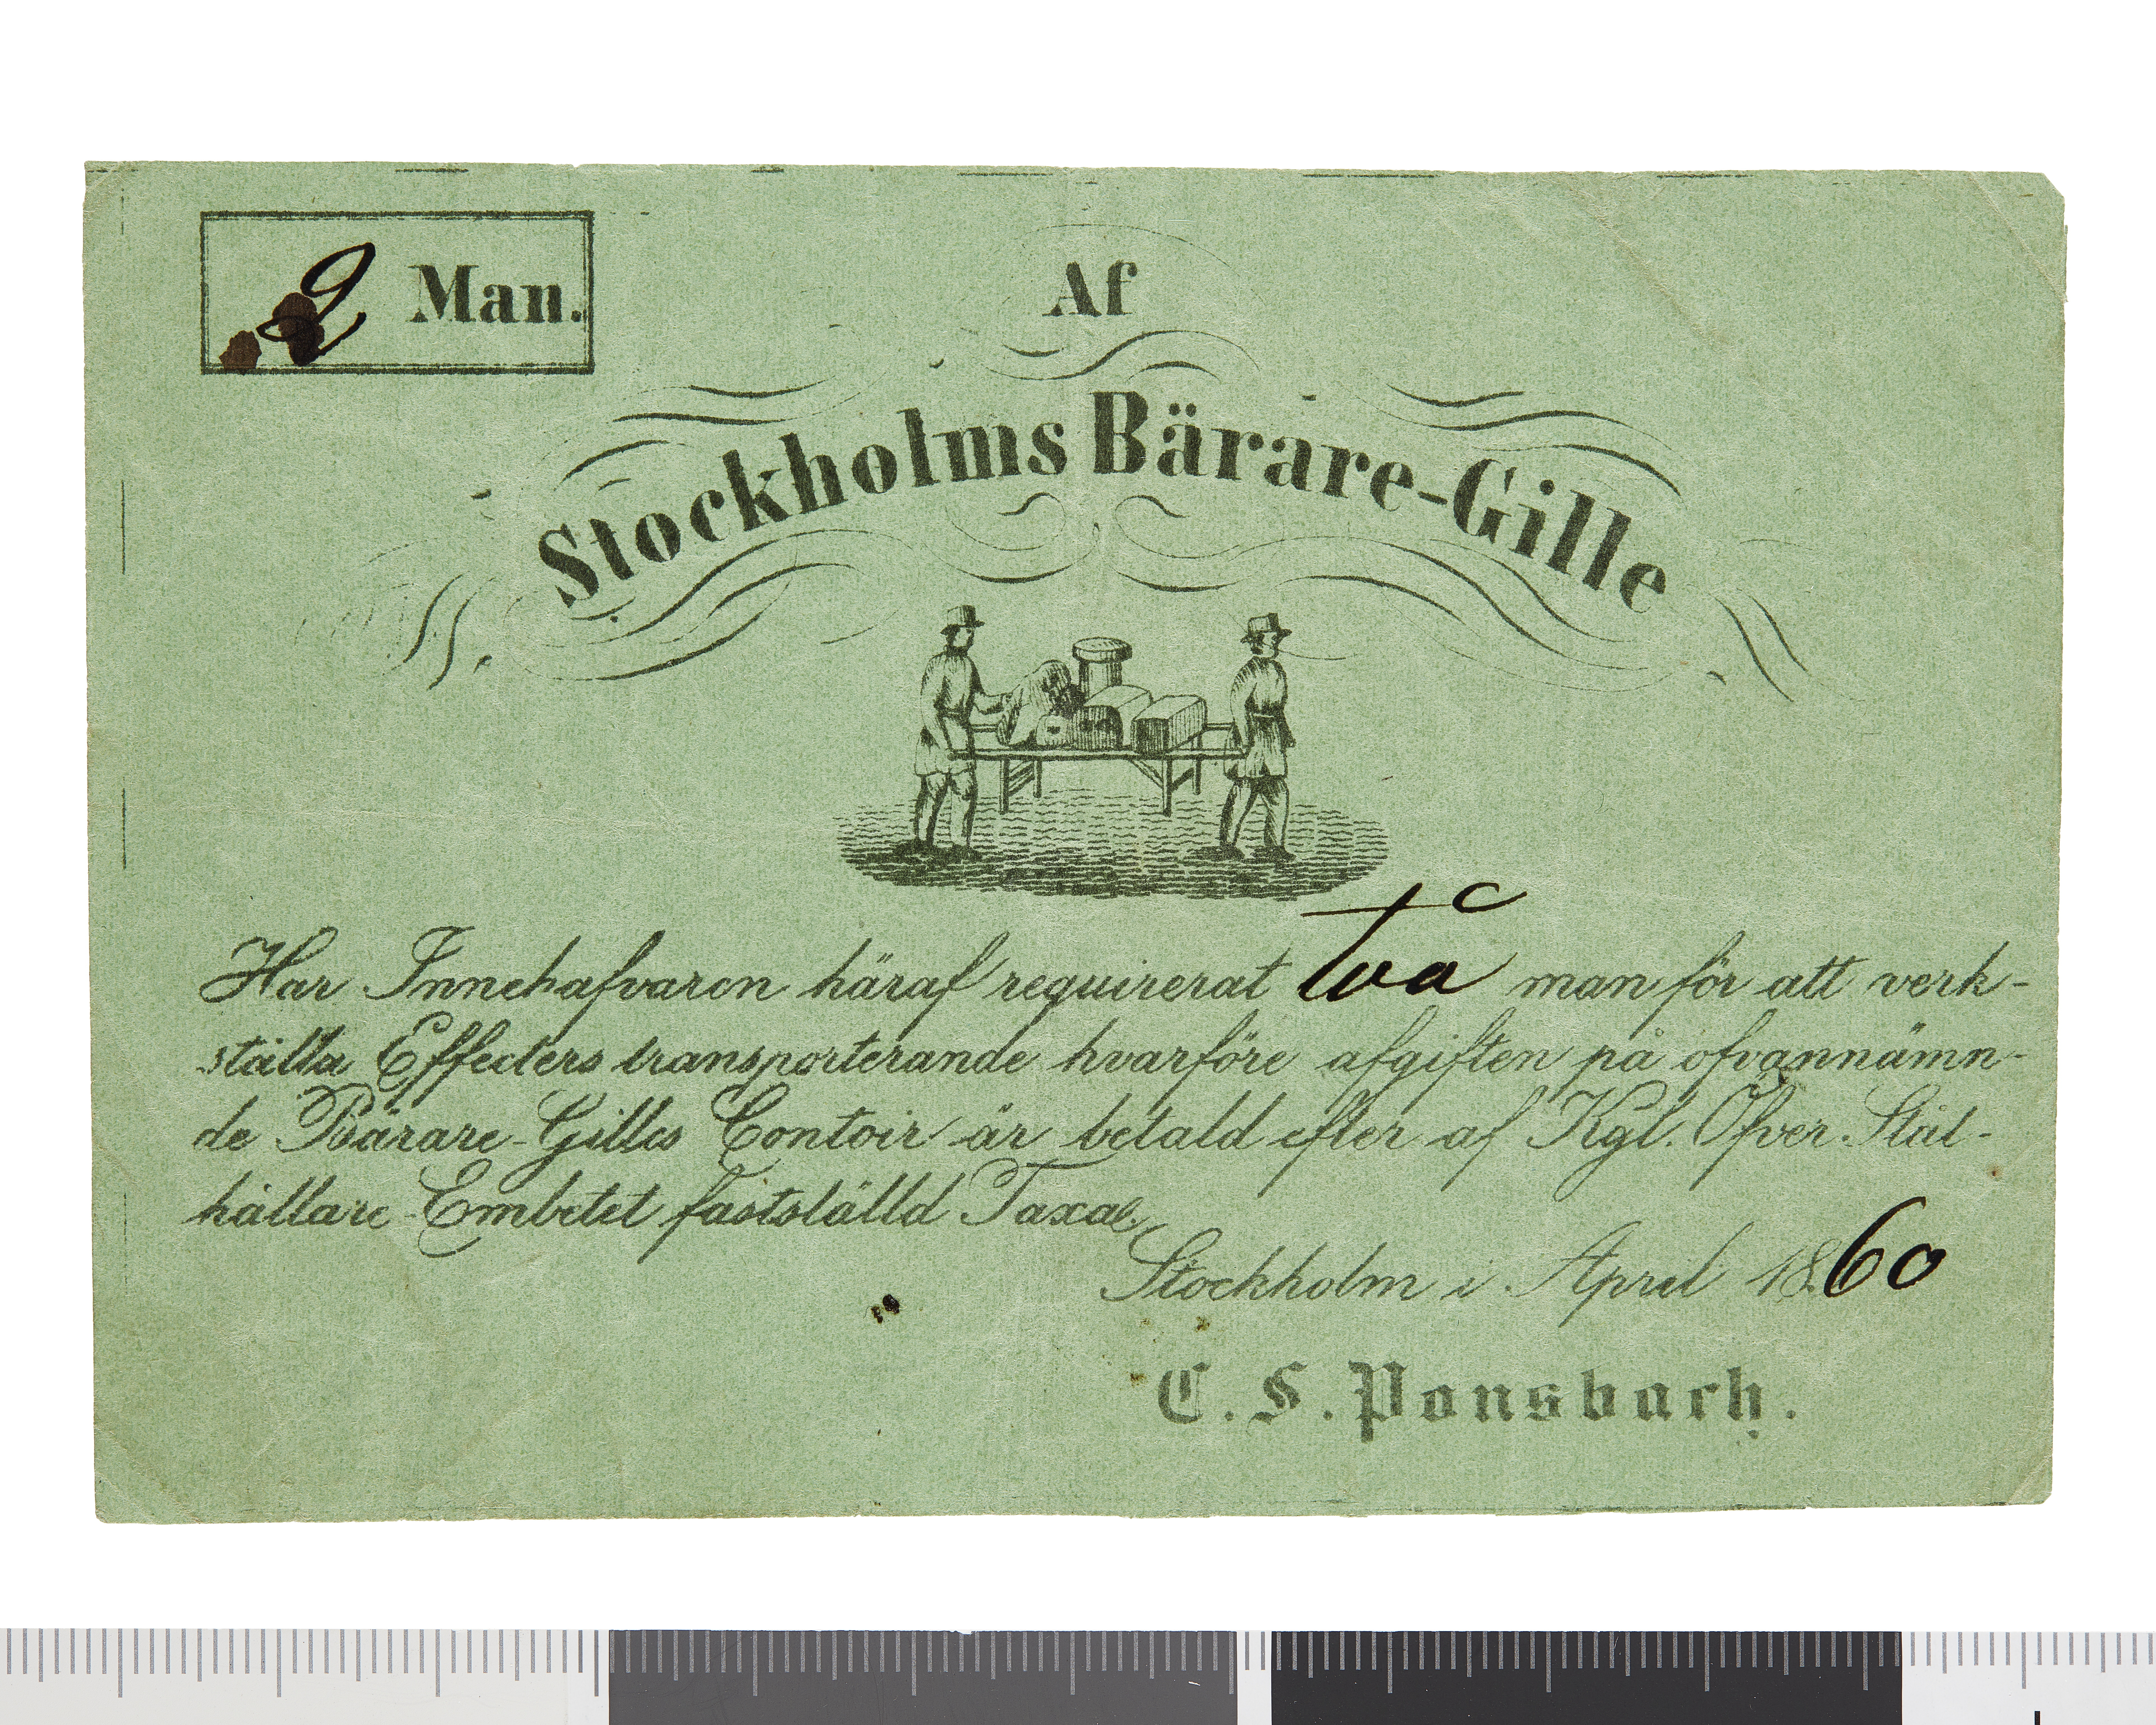 2 Man.
Af
Stockholms Bärare-Gille
Har Innehafvaren häraf requirerat två man för att verk-
ställa Effecters transporterande hvarföre afgiften på ofvannämn-
de Bärare-Gilles Contoir är betald efter af Kgl. Öfver-Ståt-
hållare-Embetet fastställd Taxa.
Stockholm i April 1860
C. S. Ponsbach.